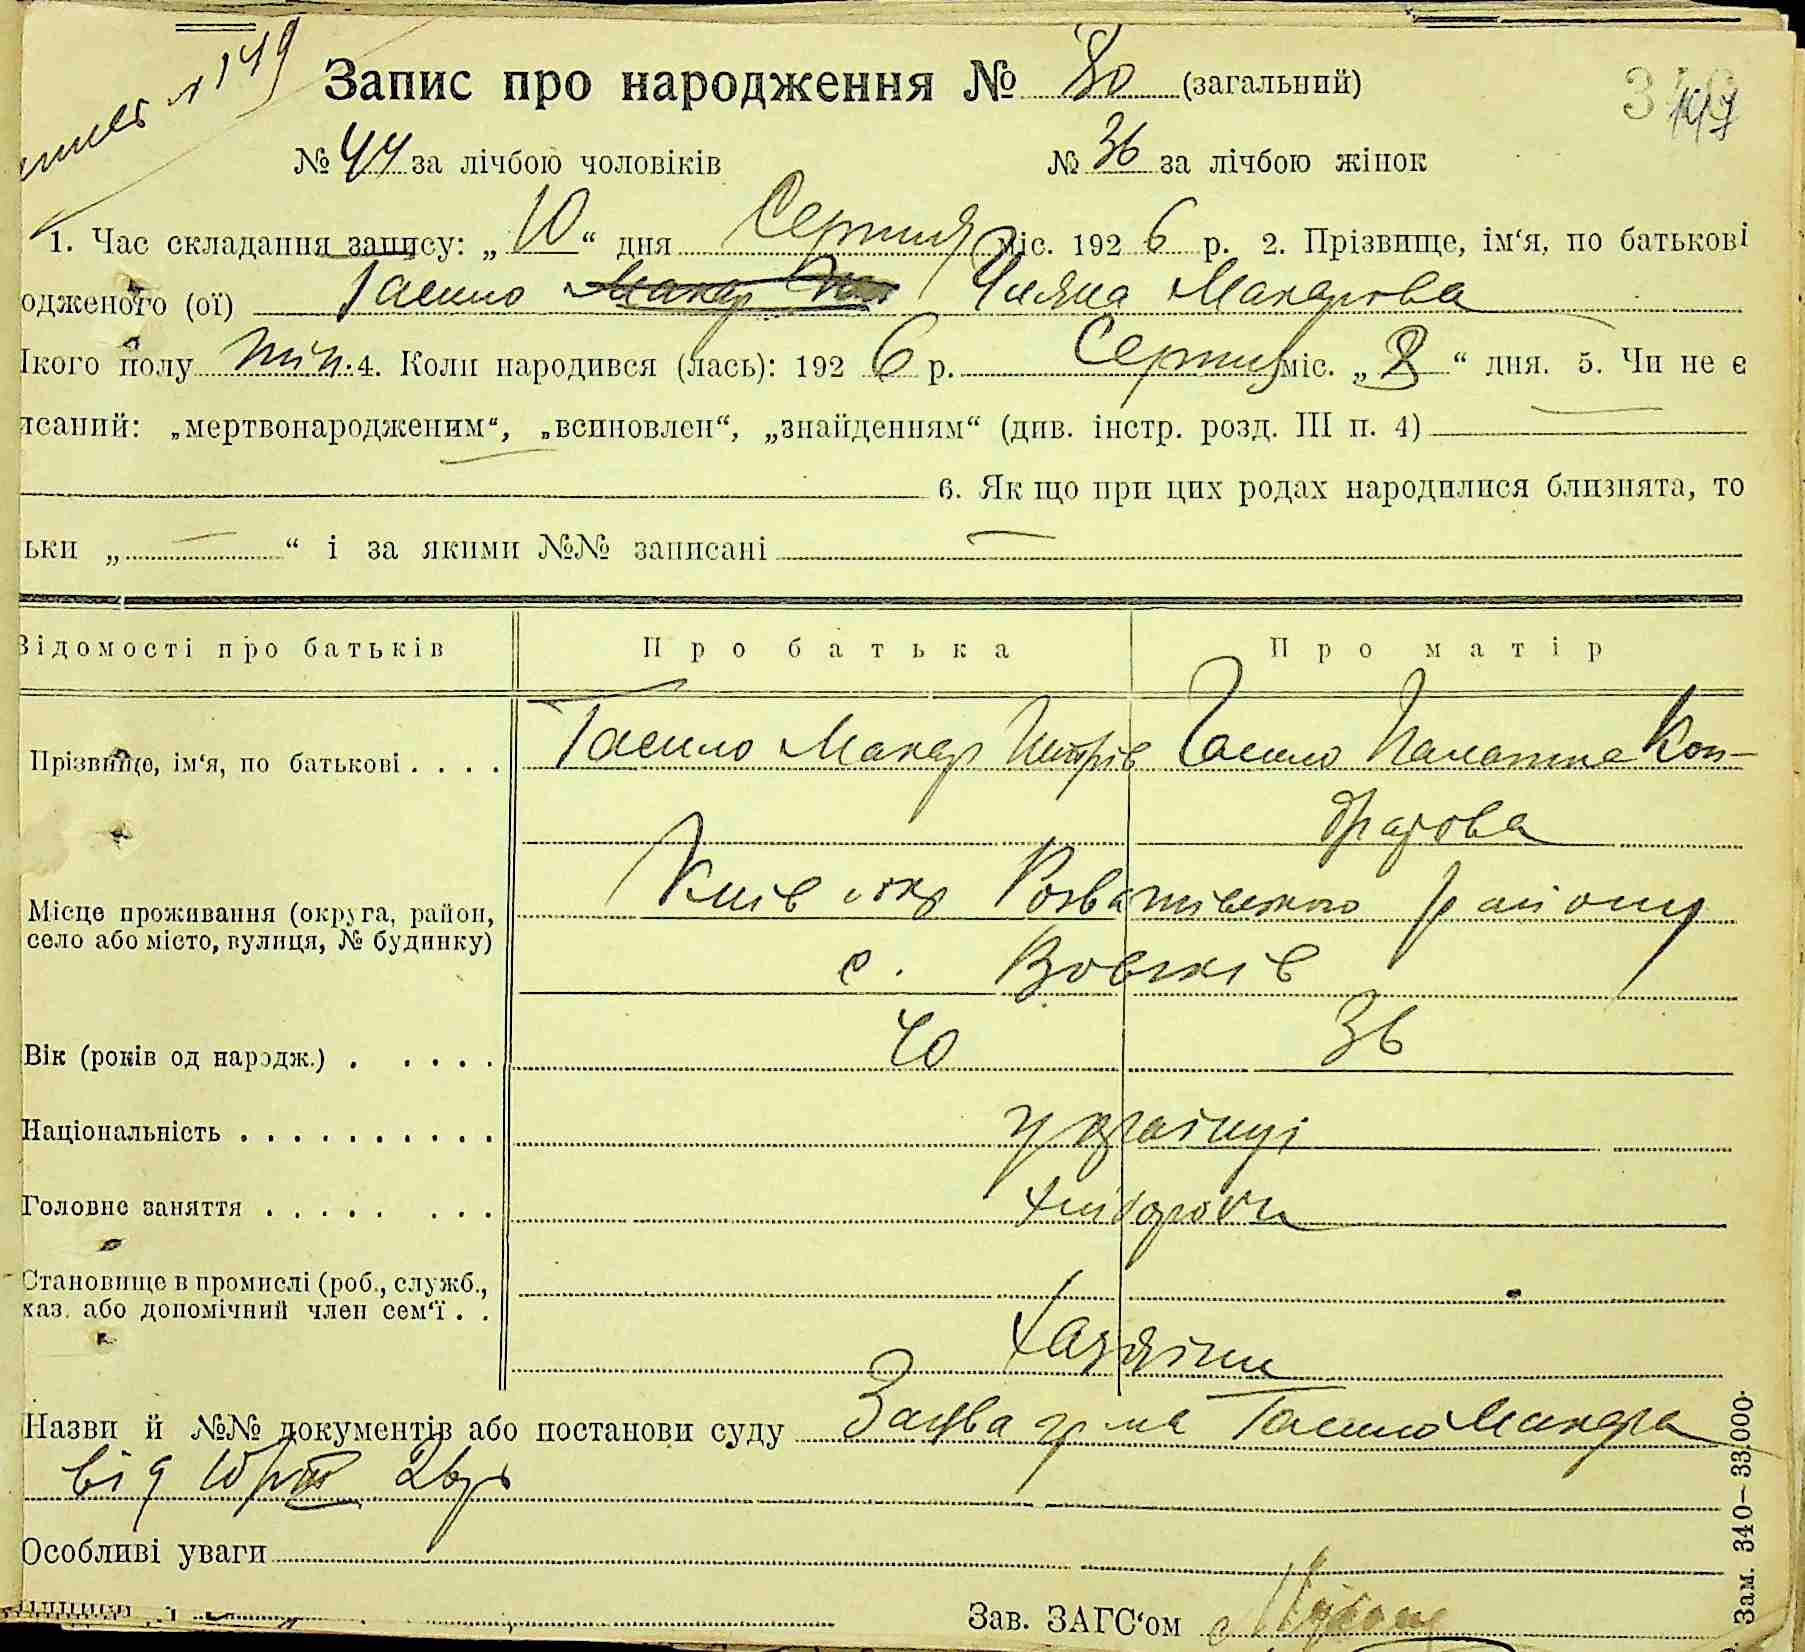 № 149
Запис про народження № 80 (загальний)
№ 44 за лічбою чоловіків № 36 за лічбою жінок
1. Час складання запису: „10“ дня Серпня міс. 1926 р. 2. Прізвище, ім‘я, по батькові
одженого (ої) Гасило Макар Уляна Макарова
кого полу жін. 4. Коли народився (лась): 1926 р. Серпня міс. „8“ дня. 5. Чи не є
исаний: „мертвонародженим“, „всиновлен“, „знайденням“ (див. інстр. розд. III п. 4) —
6. Як що при цих родах народилися близнята, то
ьки „—“ і за якими №№ записані —
Відомості про батьків Про батька Про матір
Прізвище, ім‘я, по батькові . . . . Гасило Макар Петрів Гасило Палажка Кон-
дратова
Місце проживання (округа, район, Київ окр Розважівського району
село або місто, вулиця, № будинку) с. Вовчків
Вік (років од народж.) . . . . . 40 36
Національність . . . . . . . . . . українці
Головне заняття . . . . . . . . хлібороби
Становище в промислі (роб., служб.,
хаз. або допомічний член сем‘ї . . хазяїни
Назви й №№ документів або постанови суду Заява гр-на Гасило Макара
від 10/VIII 26 р
Особливі уваги
Зав. ЗАГС‘ом
Зам. 340—33.000.